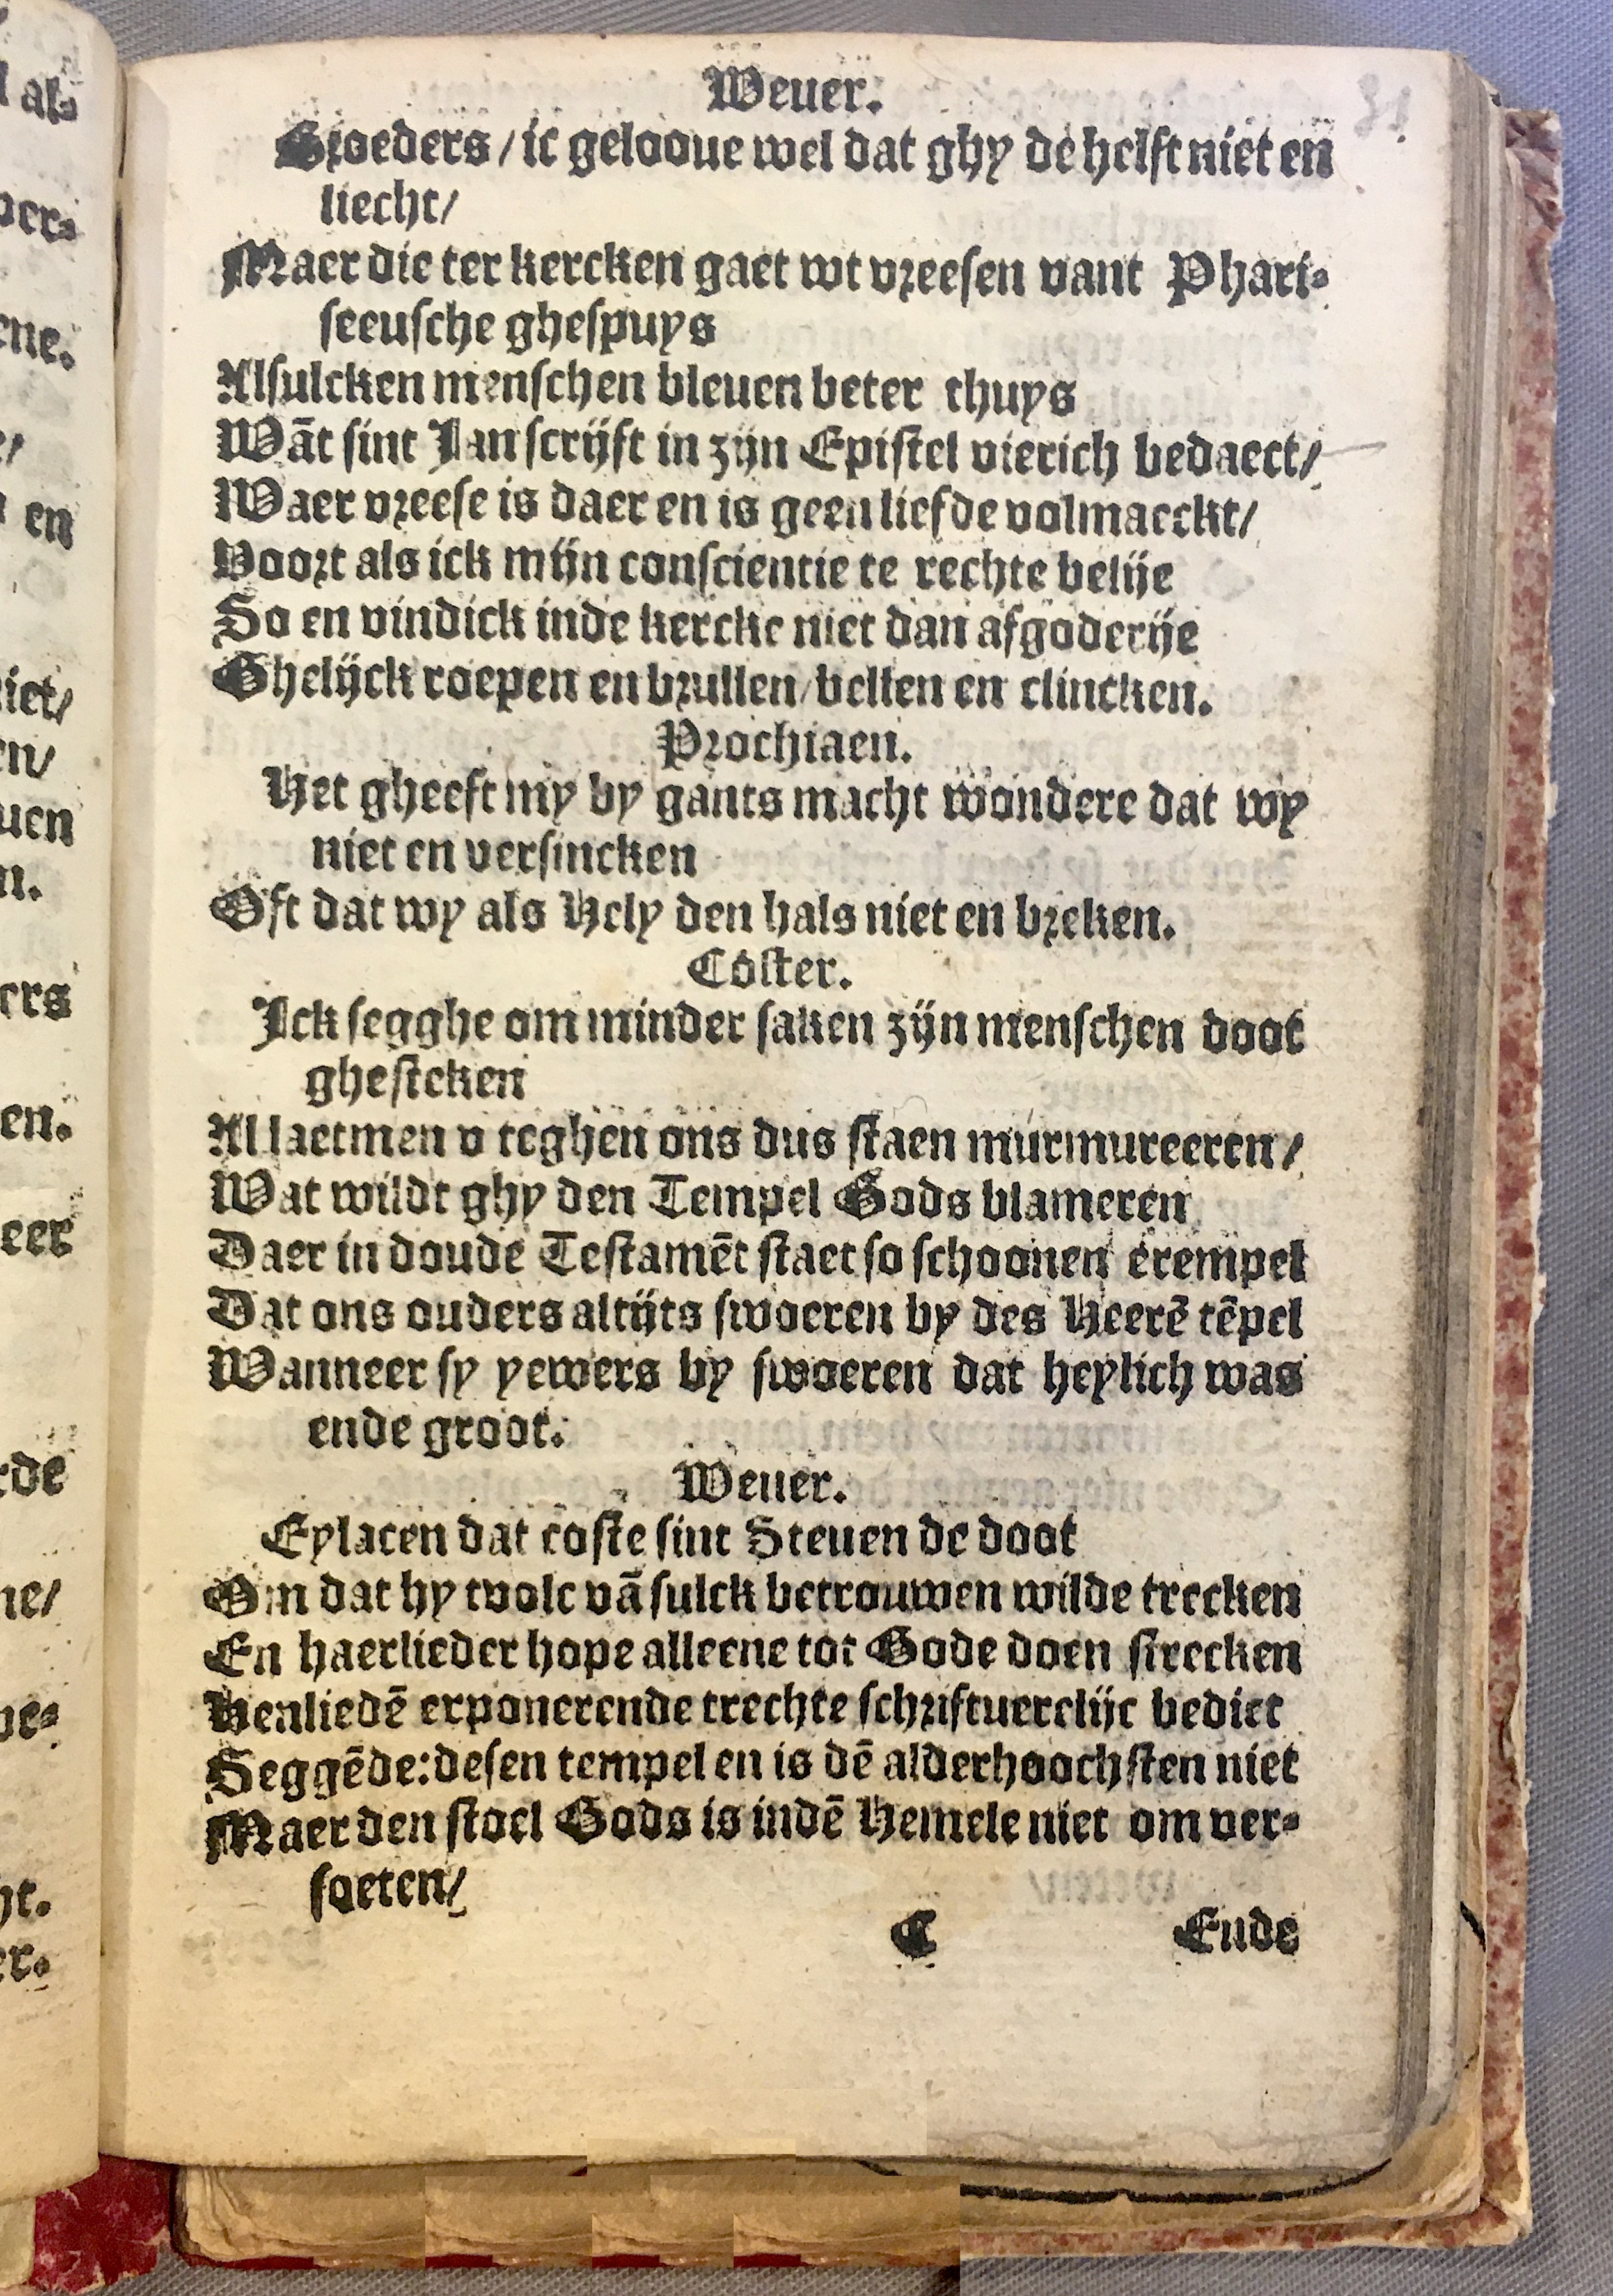 Weuer.
Broeders / ic gelooue wel dat ghy de helft niet en
liecht/
Maer die ter kercken gaet wt vreesen vant Phari⸗
seeusche ghespuys
Alsulcken menschen bleuen beter thuys
Wāt sint Jan scrijft in zijn Epistel vierich bedaect/
Waer vreese is daer en is geen liefde volmaeckt/
Voort als ick mijn conscientie te rechte belije
So en vindick inde kercke niet dan afgoderije
Ghelijck roepen en brullen/bellen en clincken.
Prochiaen.
Het gheeft my by gants macht wondere dat wy
niet en versincken
Oft dat wy als Hely den hals niet en breken.
Coster.
Ick segghe om minder saken zijn menschen doot
ghesteken
Al laetmen v teghen ons dus staen murmureeren/
Wat wildt ghy den Tempel Gods blameren
Daer in doude Testamēt staet so schoonen exempel
Dat ons ouders altijts swoeren by des Heerē tēpel
Wanneer sy yewers by swoeren dat heylich was
ende groot.
Weuer.
Eylacen dat coste sint Steuen de doot
Om dat hy tvolc vā sulck betrouwen wilde trecken
En haerlieder hope alleene tot Gode doen strecken
Henliedē exponerende trechte schriftuerlijc bediet
Seggēde: desen tempel en is dē alderhoochsten niet
Maer den stoel Gods is indē Hemele niet om ver⸗
soeten/
C Ende
al⸗
ver⸗
ene.
en
iet/
en/
uen
n.
ers
en.
eer
rde
ne/
ve⸗
ht.
er.